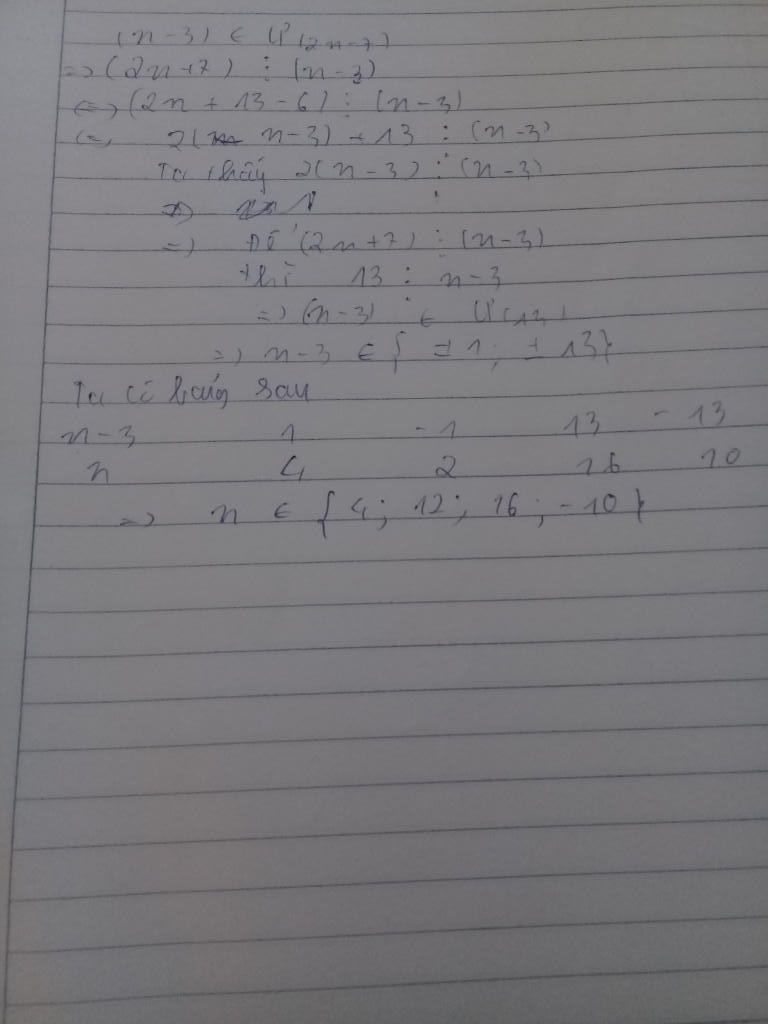 (n-3) ∈ Ư(2n-7)
=> (2n+7) ⋮ (n-3)
<=> (2n + 13 - 6) ⋮ (n-3)
<=> 2(n-3) + 13 ⋮ (n-3)
Ta thấy 2(n-3) ⋮ (n-3)
=>
=> Để (2n+7) ⋮ (n-3)
thì 13 ⋮ n-3
=> (n-3) ∈ Ư(13)
=> n-3 ∈ { ±1; ±13}
Ta có bảng sau
n-3 1 -1 13 -13
n 4 2 16 10
=> n ∈ { 4; 12; 16; -10}